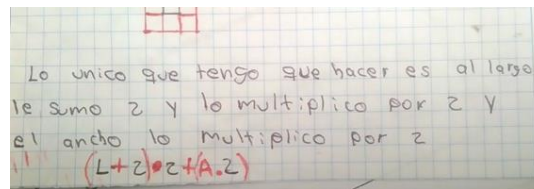 Lo unico que tengo que hacer es al largo
le sumo 2 y lo multiplico por 2 y
el ancho lo multiplico por 2
(L+2)•2+(A.2)